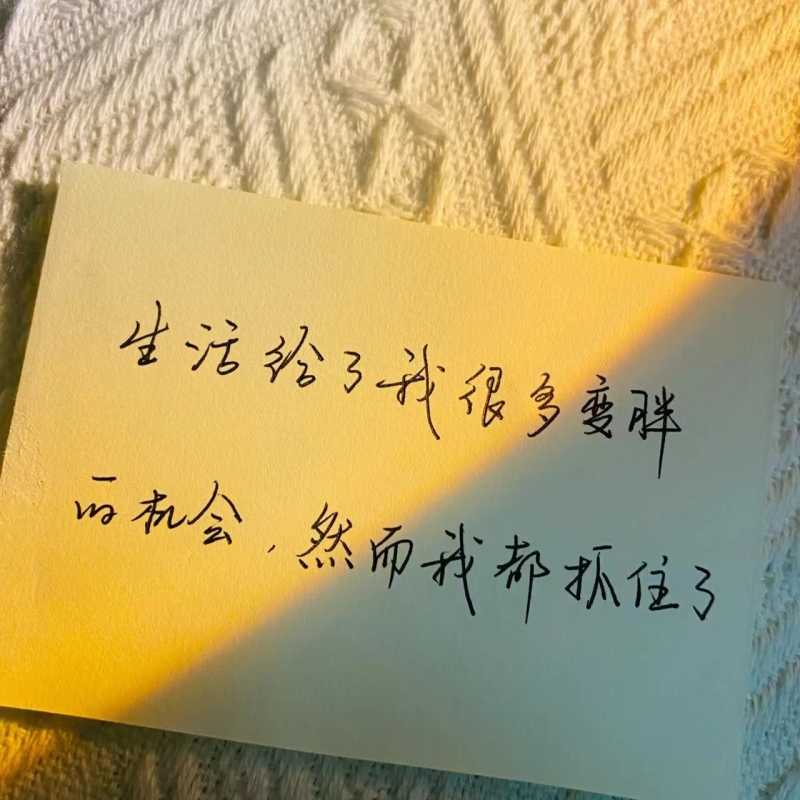 生活给了我很多变胖
的机会,然而我都抓住了